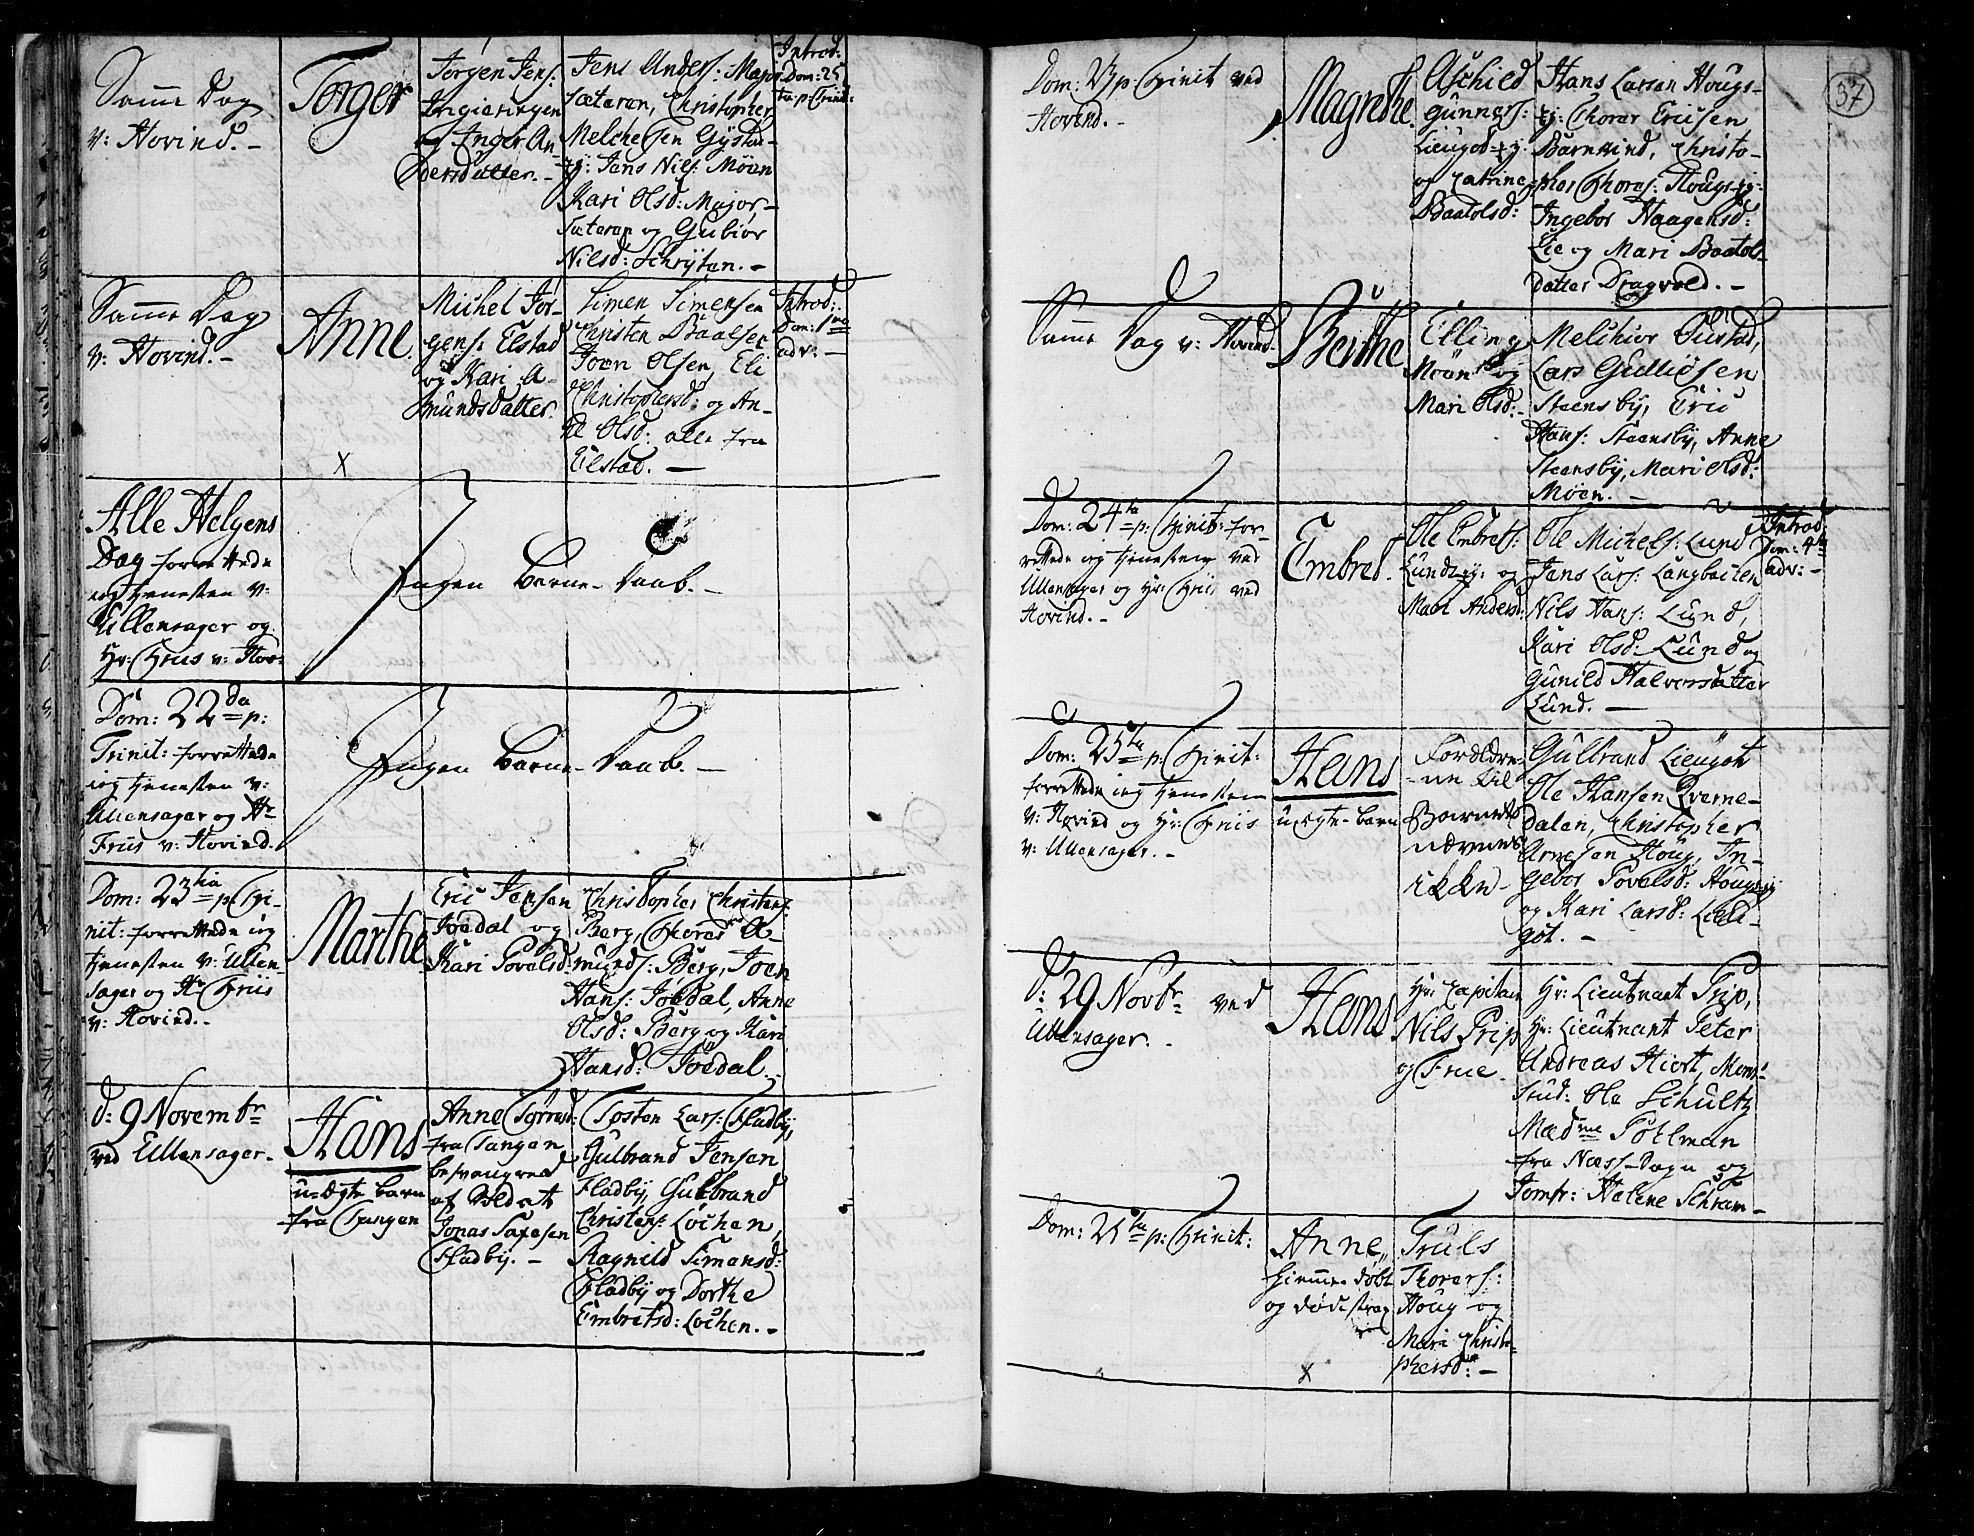 Samme Dag
v: Hovind. -
Torger
Jørgen Jens:
Ingieringen
og Inger An-
dersdatter. -
Jens Anders: Major
Sæteren, Christopher
Melchersen Gystad
-ej: Jens Nils: Möen
Kari Olsd: Major-
Sæteren og Gubiør
Nilsd: Schrÿten. -
Introd:
Dom: 25
ta p: Trinit:
Samme Dag
v: Hovind. -
Anne.
Michel Jør-
gens: Elstad
og Kari A-
mundsdatter.
Simen Simensen
Christen Paalsen
Joen Olsen, Eli
Christophersd: og An-
ne Olsd: alle fra
Elstad. -
Introd:
Dom: 1ma
adv: -
x
Alle Helgens
Dag forrettede
ieg tienesten v:
Ullensager og
Hr: Friis v: Hov:
Ingen Barne-Daab. -
Dom: 22da p:
Trinit: forrettede
ieg tienesten v:
Ullensager og Hr
Friis v: Hovind.
Ingen Barne-Daab. -
Dom: 23tia p: Tri-
nit: forrettede ieg
tienesten v: Ullen-
sager og Hr Friis
v: Hovind. -
Marthe
Eric Jensen
Joedal og
Kari Povelsd:
Christopher Christens:
Berg, Thorer A-
munds: Berg, Joen
Hans: Joedal, Anne
Olsd: Berg og Kari
Hansd: Joedal.
d: 9 Novembr
ved Ullensager. -
Hans
u-Ægte barn
fra Tangen
Anne Torersd:
fra Tangen
besvangred
af Soldat
Jonas Saxesen
Fladby. -
Tosten Lars: Fladbÿ,
Gulbrand Jensen
Fladby, Gulbrand
Christens: Løchen,
Ragnild Simensd:
Fladby og Dorthe
Embretsd: Løchen. -
37
Dom: 23 p: Trinit ved
Hovind. -
Magrethe.
Aschild
Gunners:
Lieugod-ej:
og Catrine
Baatolsd:
Hans Larsen Houg-
ej: Thorer Ericsen
Barnvind, Christo-
pher Thores: Houg-ej:
Ingebor Haagensd:
Lie og Mari Baatols-
datter Dragvold. -
Samme Dag v: Hovind.
Berthe
Elling
Möen og
Mari Olsd: -
Melchior Gustad,
Lars Gulliösen
Steensby, Eric
Hans: Steensbÿ, Anne
Steensbÿ, Mari Olsd:
Möen. -
Dom: 24ta p: Trinit: for-
rettede ieg tienesten ved
Ullensager og Hr: Friis ved
Hovind. -
Embret.
Ole Embrets:
Lund-ej: og
Mari Andersd:
Ole Michels: Lund
Jens Lars: Langbachen
Nils Hans: Lund,
Kari Olsd: Lund og
Gunild Halvorsdatter
Lund. -
Introd:
Dom: 4ta
adv: -
Dom: 25ta p: Trinit:
forrettede ieg tienesten
v: Hovind og Hr: Friis
v: Ullensager. -
Hans
u-Ægte-barn
Forældre-
ne til
Barnet
nævnes
ikke -
Gulbrand Lieugot
Ole Hansen Qverne-
dalen, Christopher
Arnesen Houg, In-
gebor Povelsd: Houg-ej
og Kari Larsd: Lieu-
got. -
d: 29 Novbr ved
Ullensager. -
Hans
Hr: Capitain
Nils Prip
og Frue.
Hr: Lieutnant Prip,
Hr: Lieutnant Peter
Andreas Hiort, Mons:
Stud: Ole Schultz
Mædme Poelman
fra Næss-Sogn og
Jomfr: Helene Schram -
Dom: 25ta p: Trinit:
Anne,
hiemme-døbt
og døde strax
Truls
Thorers:
Houg og
Mari Christo-
phersd: -
x